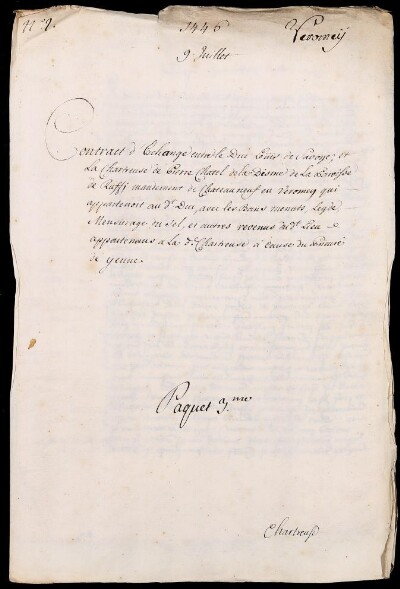 n.º 9.
1446
Veromeÿ
9 Juillet
Contract d'Echange entre le Duc Louis de Savoye; et
La Chartreuse de Pierre Chatel de la Disme de la Paroisse
de Ruffi mandement de Chateauneuf en Veromey qui
appartenoit au d.t Duc, avec les Bans menuts, Leyde
Mensurage du Sel, et autres revenus du d.t Lieu
appartenans a la d.e Chartreuse à cause du
de Yenne.
Paquet 3.me
Chartreuse